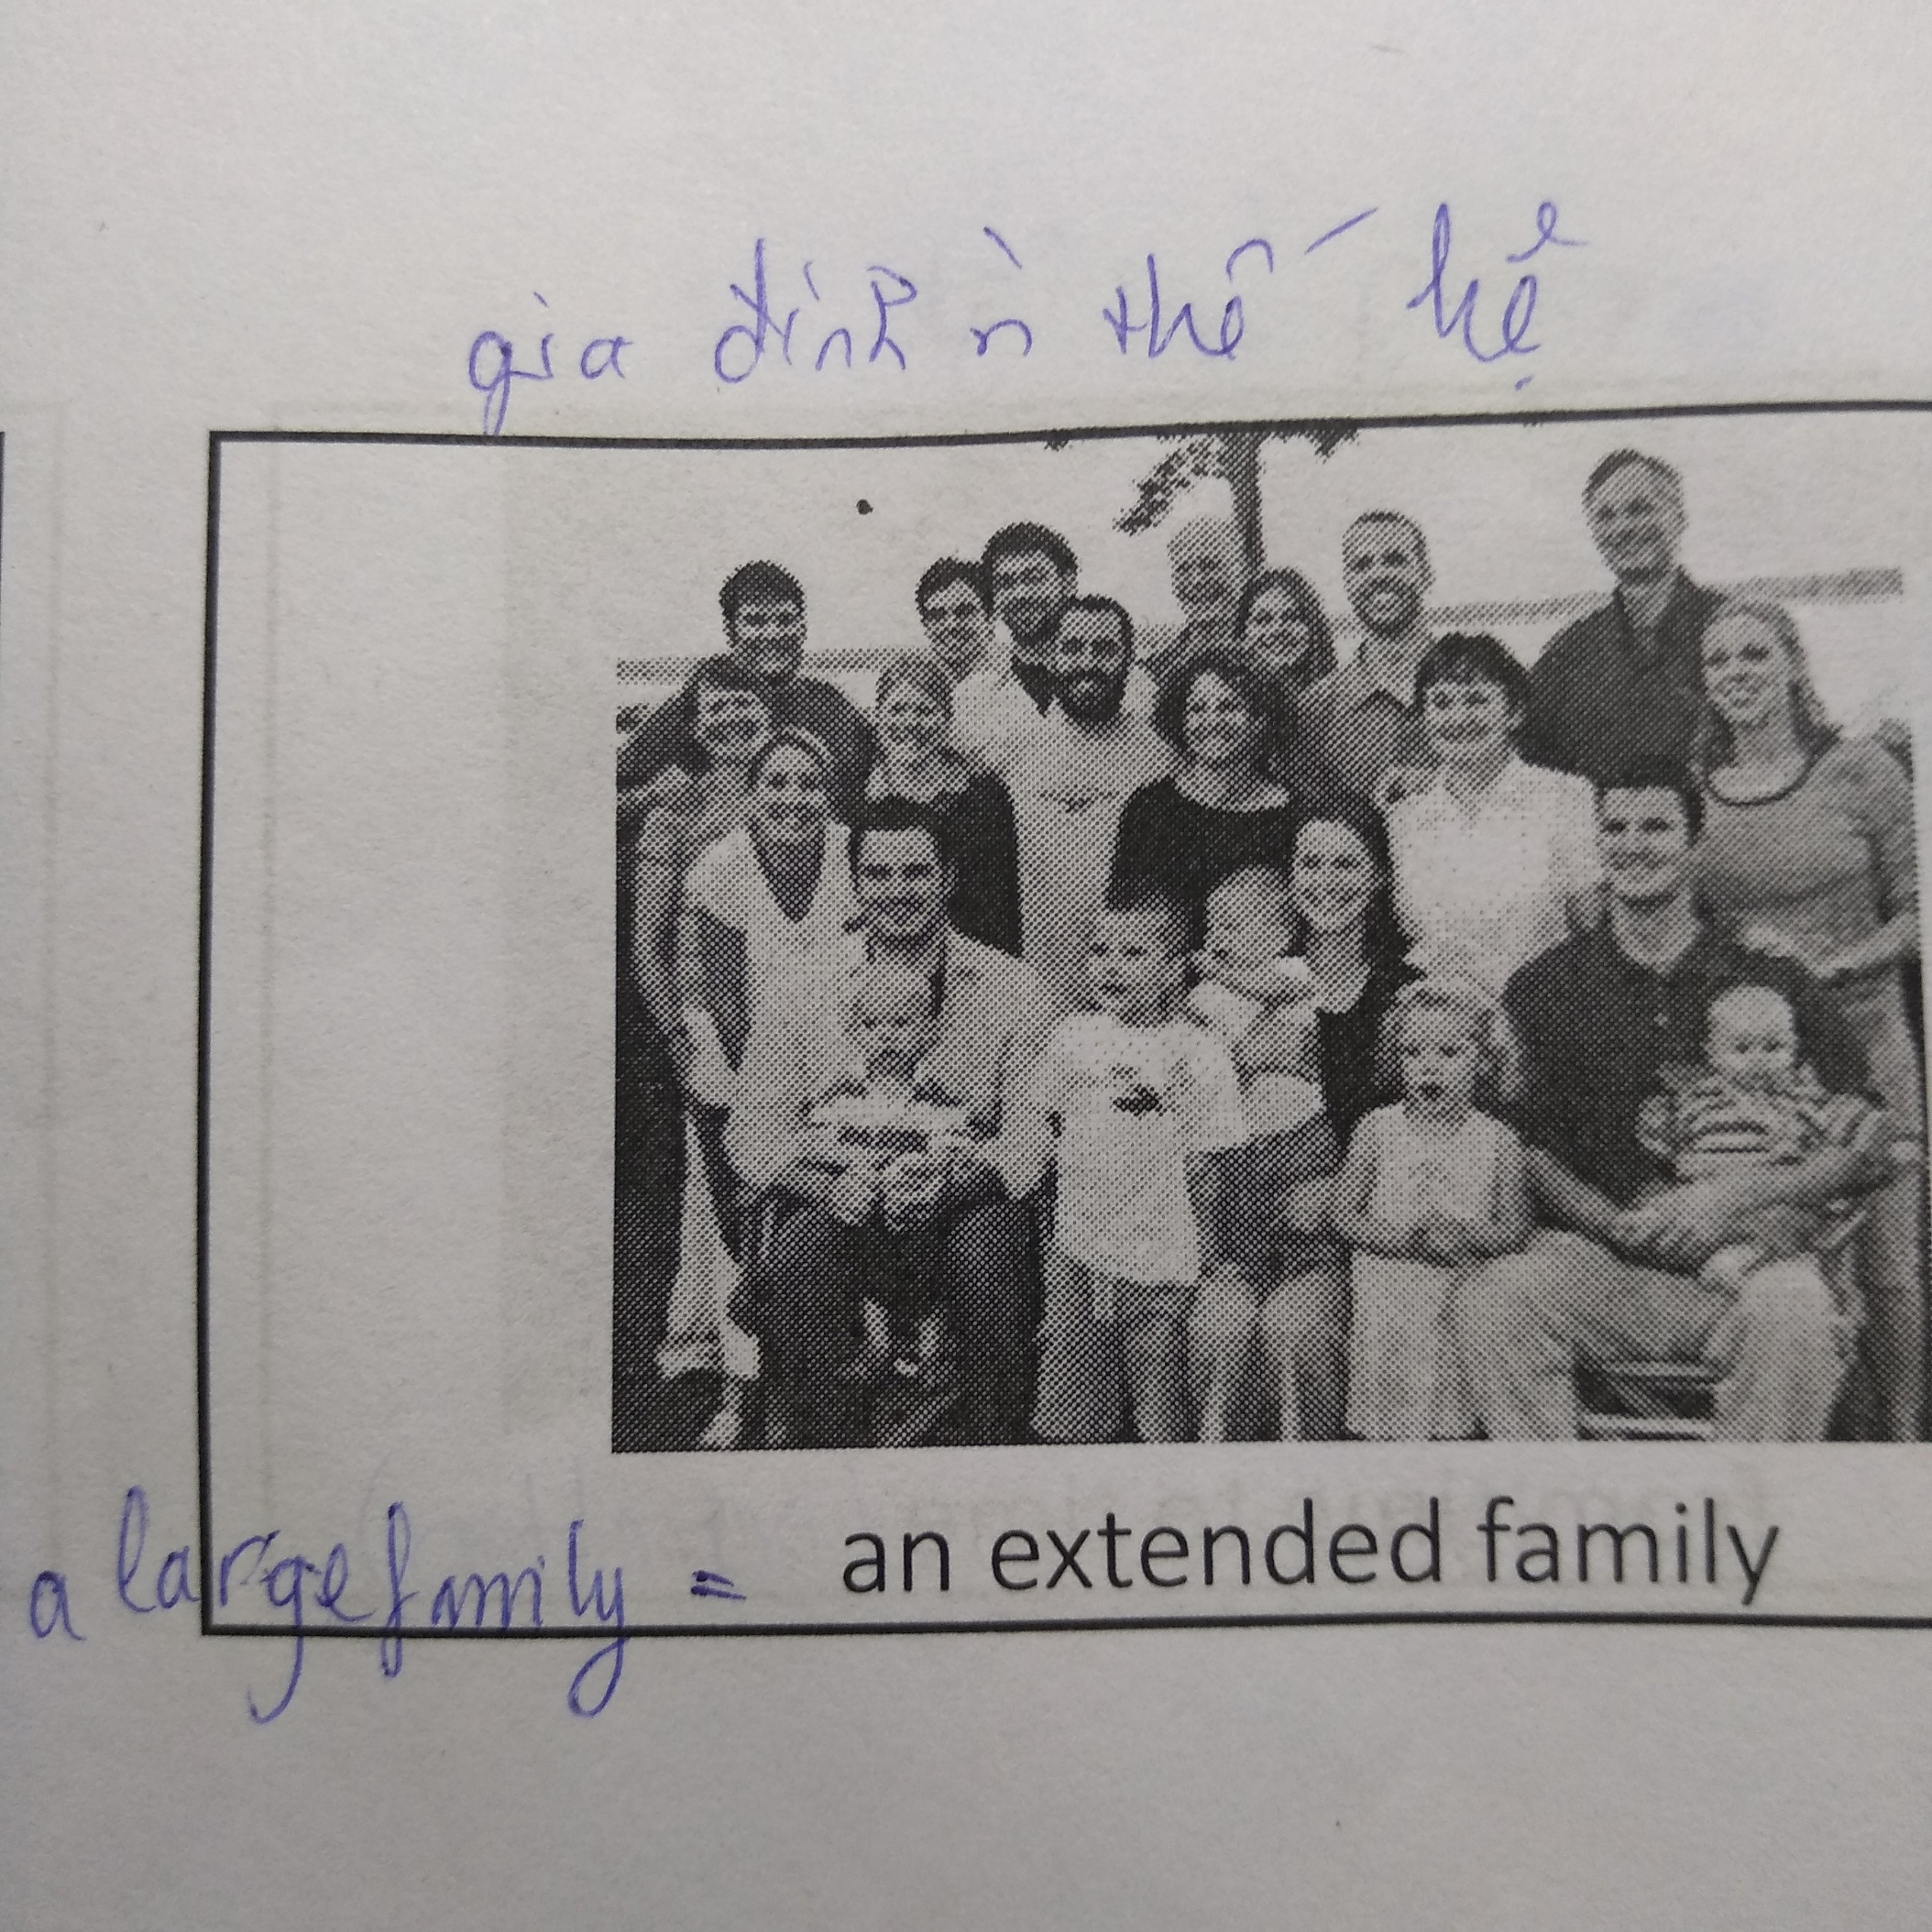 gia đình n thế hệ
a large family = an extended family